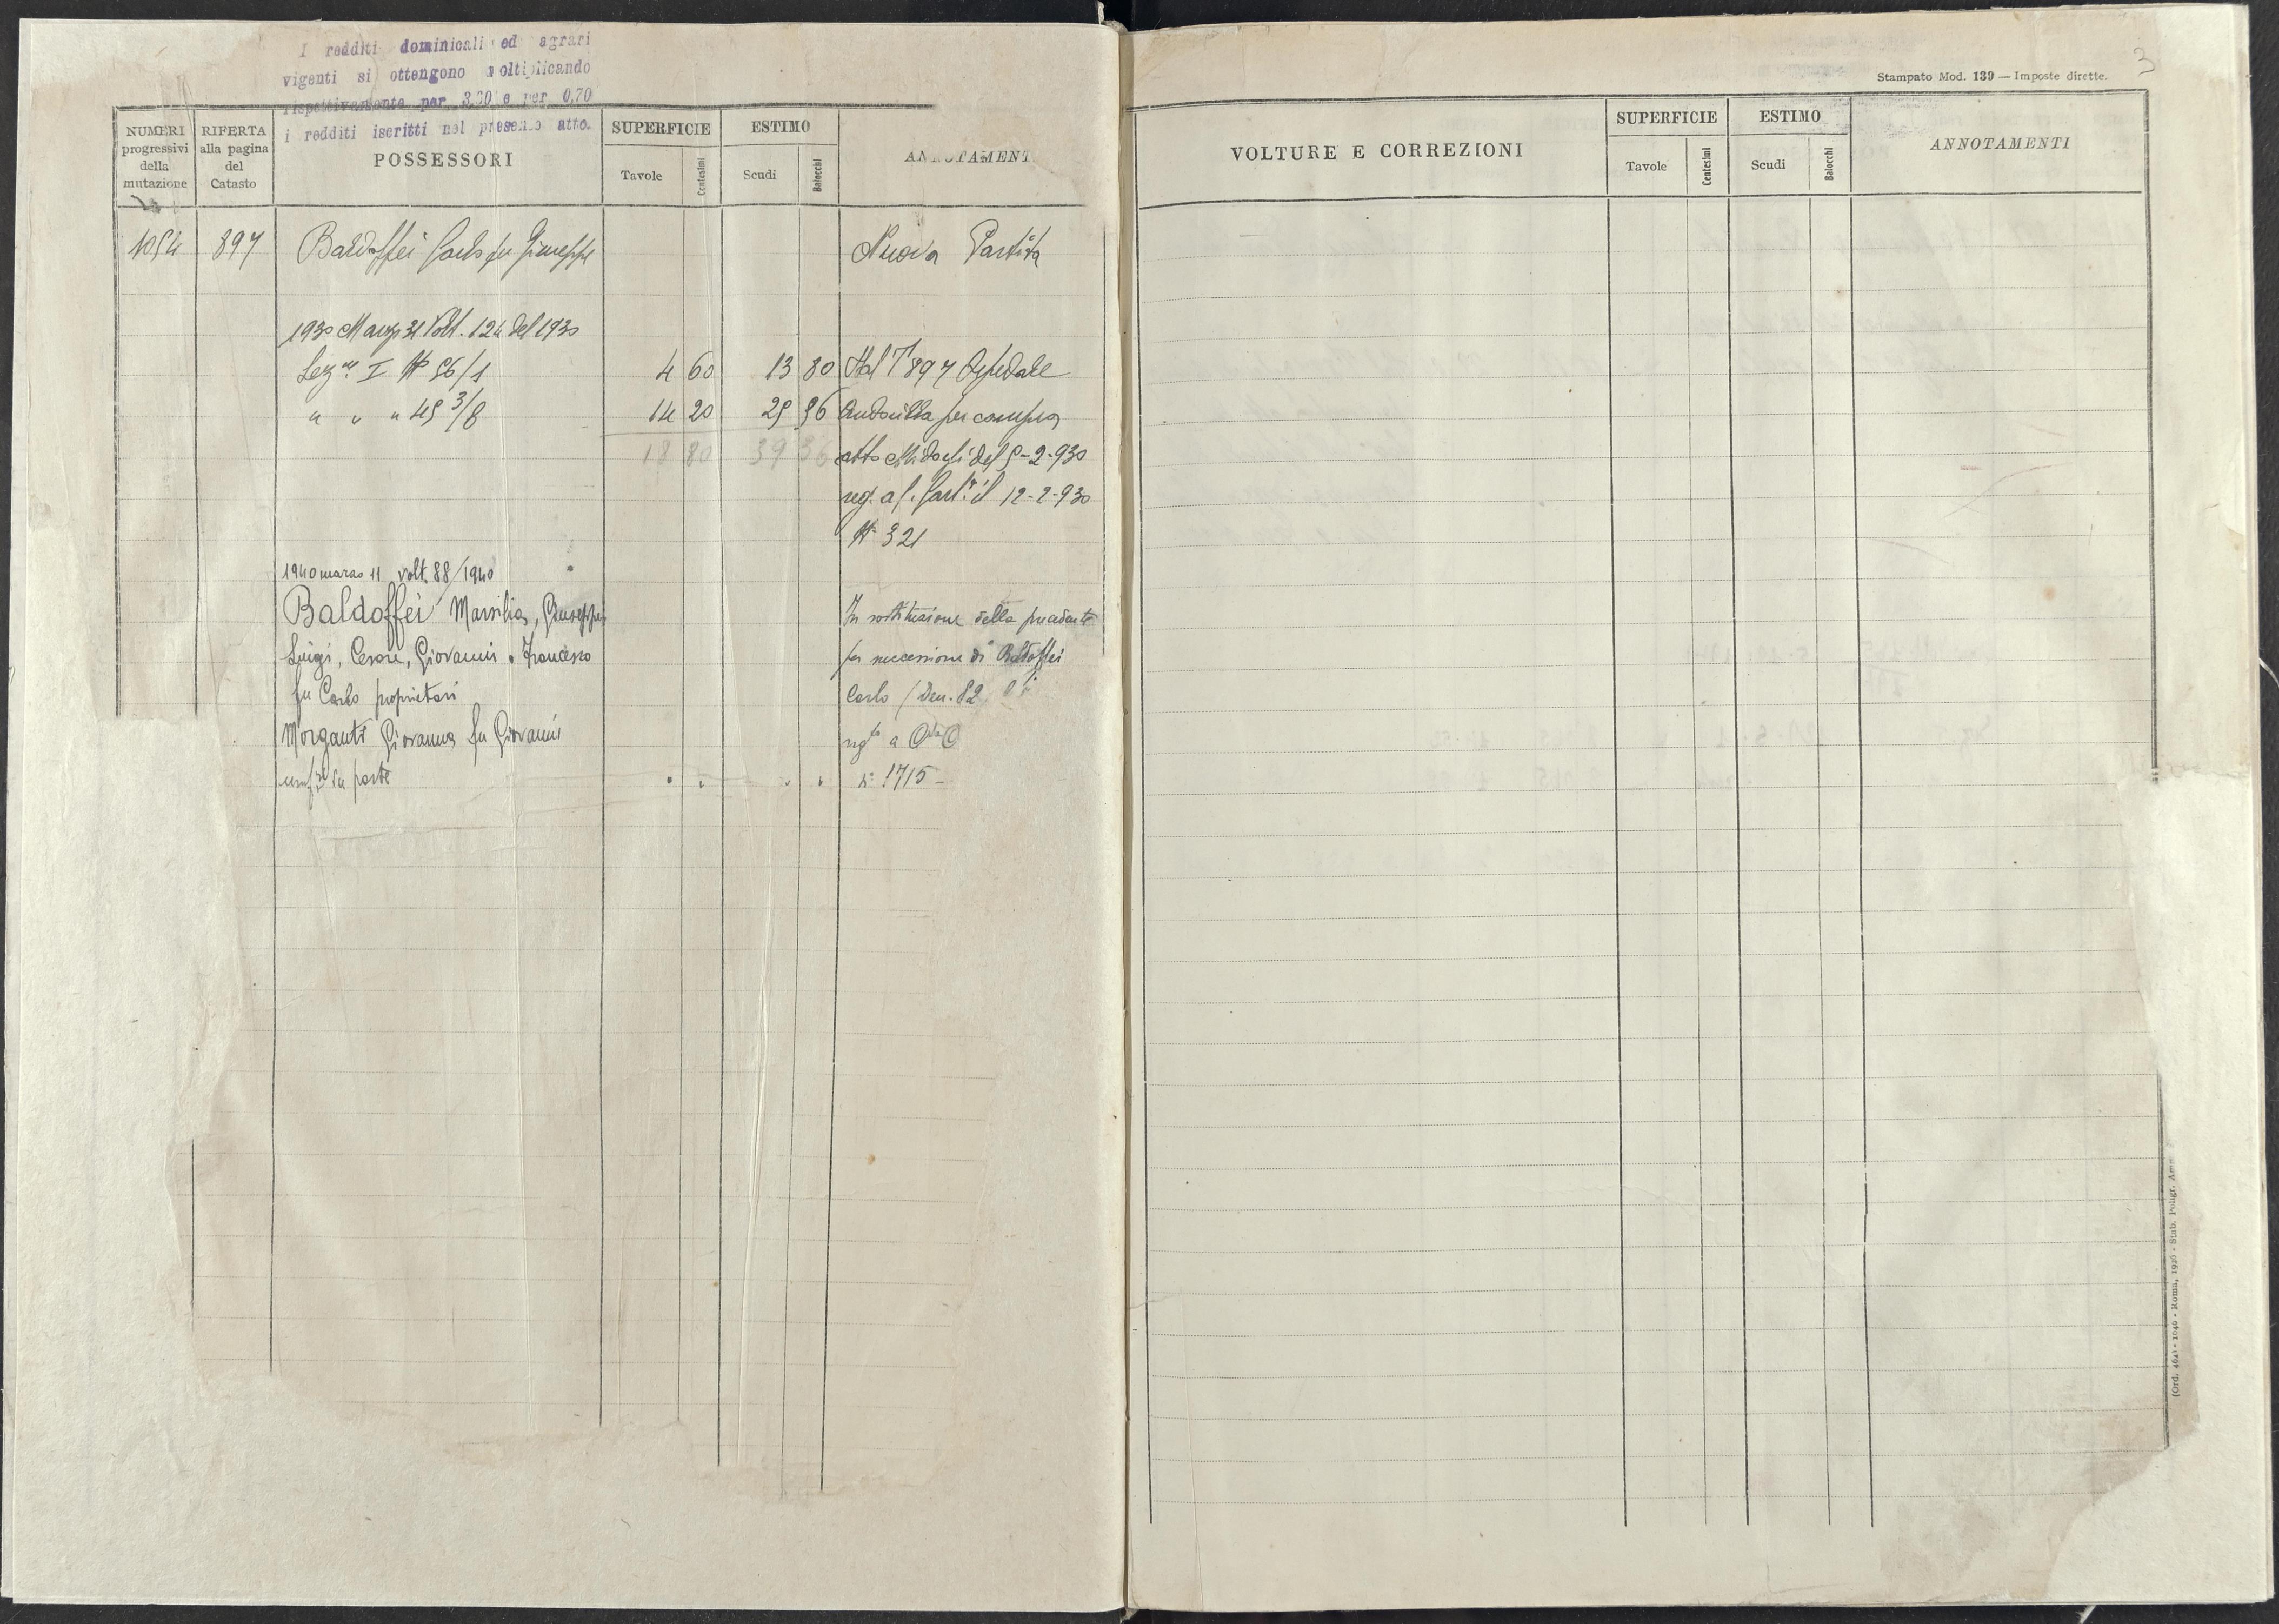 I redditi dominicali ed agrari
vigenti si ottengono moltiplicando
rispettivamente per 3,20 e per 0,70
i redditi iscritti nel presente atto.
NUMERI
progressivi
della
mutazione
RIFERTA
alla pagina
del
Catasto
POSSESSORI
SUPERFICIE
Tavole
Centesimi
ESTIMO
Scudi
Baiocchi
ANNOTAMENT
1054 897 Baldoffei Carlo fu Giuseppe Nuova Partita
1930 Marzo 31 Volt. 124 del 1930
Sez.ne I N° 56/1 4 60 13 80 Dal T° 897 Ospedale
" " " 45 3/8 14 20 25 56 per compra
18 80 39 36 atto del 5-2-930
reg. a il 12-2-930
N° 321
1940 marzo 11 volt. 88/1940
Baldoffei Marsilia, Giuseppe, In sostituzione della precedente
Luigi, Cesare, Giovanni e Francesco per successione di Baldoffei
fu Carlo proprietari Carlo (Den. 82
Morganti Giovanna fu Giovanni
in parte " " " " N° 1715 -
Stampato Mod. 139 — Imposte dirette.
3
VOLTURE E CORREZIONI
SUPERFICIE
Tavole
Centesimi
ESTIMO
Scudi
Baiocchi
ANNOTAMENTI
Roma, 1926 - Stab. Poligr.